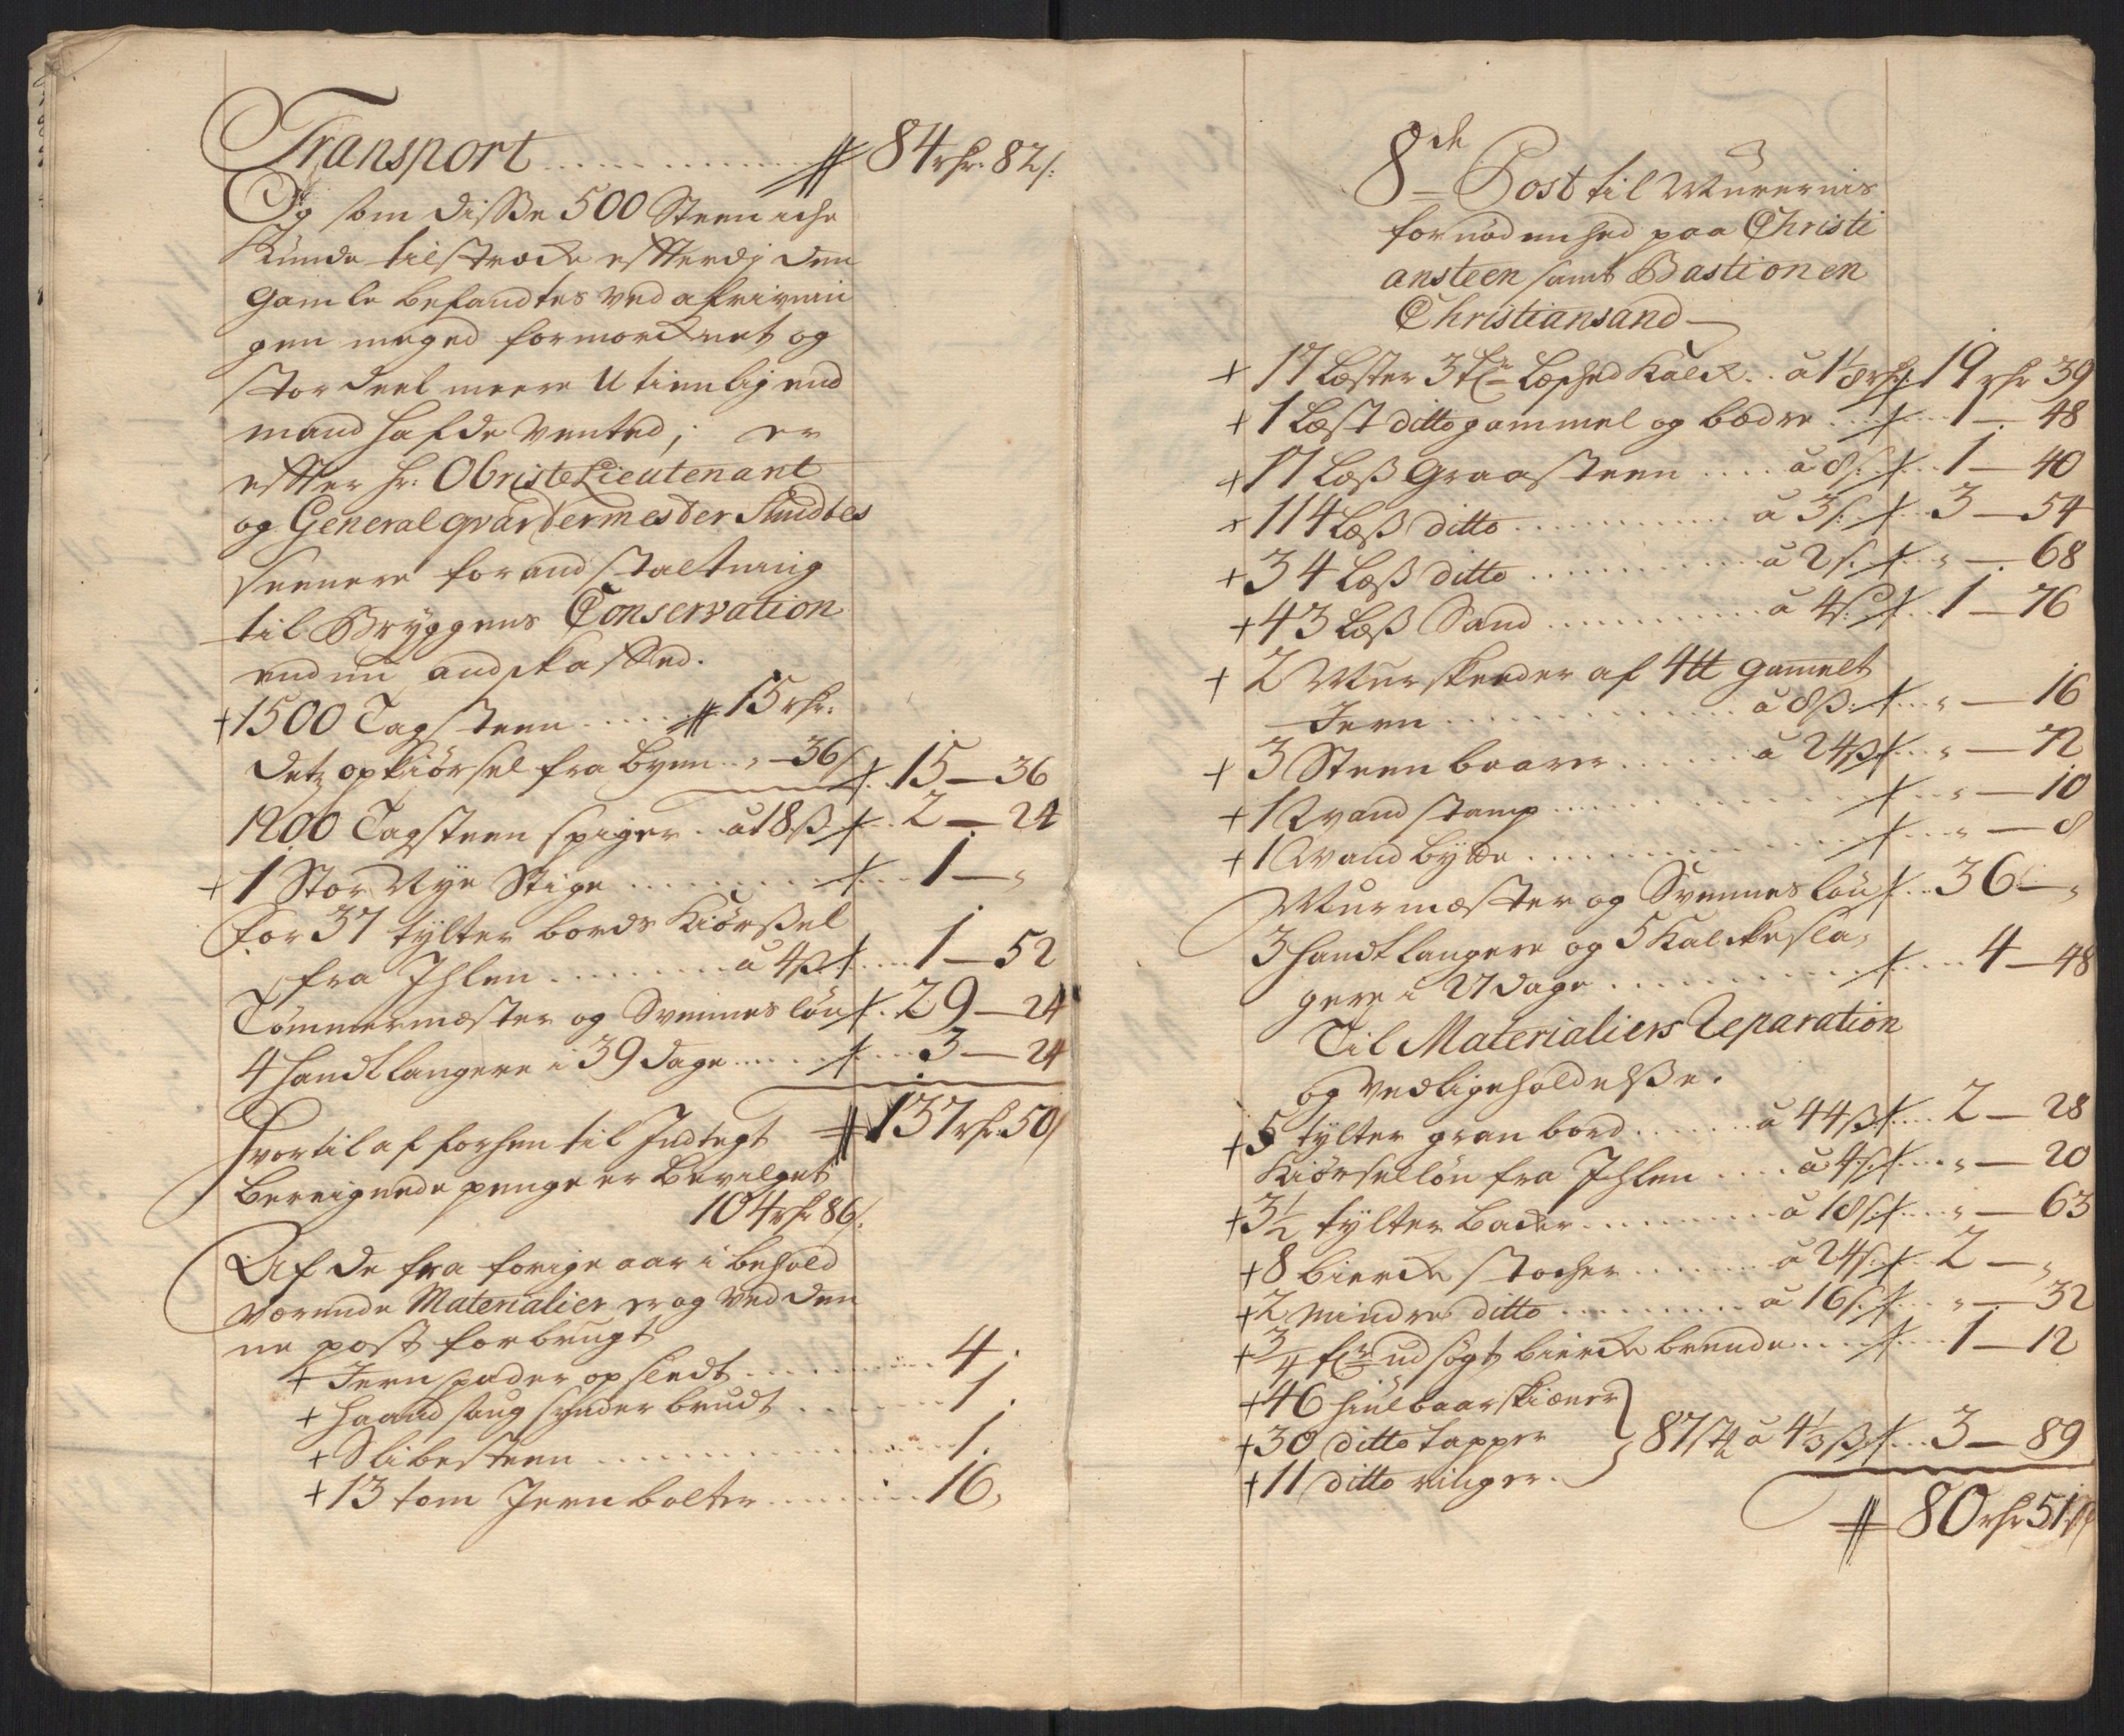 Transport ............ # 84 rhr. 82 s:
Og som diße 500 Steen iche
Kunde tilstræcke efterdj den
gamle befandtes ved afrivnin
gen meged formorcknet og
stor deel meere Utienlig end
mand hafde vented; er
efter hr: ObristeLieutenant
og General qvartermester
seenere forandstaltning
til Bryggens Conservation
endnu andskaffed.
+ 1500 Tagsteen ..... # 15 rhr:
detz opkiørsel fra byen .. „ — 36 s 15 — 36
1200 Tagsteen spiger .. a 18 ß 2 — 24
+ 1 Stor Nye Stige ......... 1 — „
For 37 tylter bords Kiørßel
fra Jhlen ......... a 4 ß .... 1 — 52
Tømmermæster og Svennes løn . 29 — 24
4 handtlangere i 39 dage ..... 3 — 24
# 137 rhr. 50 s
hvortil af forhen til Indtegt
bereignede penge er bevilget
104 rhr 86 s:
Af de fra forige aar i behold
værende Materialier er og ved den
ne post forbrugt
+ Jern spader opsledt ....... 4.
+ haand saug sønder brudt ...... 1.
+ Slibesteen ............ 1.
+ 13 tom Jern bolter ....... 16,
8de Post til Murernis
fornødenhed paa Christi
ansteen samt Bastionen
Christiansand —
+ 17 Læster 3 Lesched Kalck .. a 1 1/8 rhr 19 rhr 39
+ 1 Læst ditto gammel og bedre .... 1 — 48
+ 17 Læß Graasteen .... a 8 s .. 1 — 40
+ 114 Læß ditto ............ a 3 s: . 3 — 54
+ 34 Læß ditto ............ a 2 s. .. „ — 68
+ 43 Læß Sand .......... a 4 s: .. 1 — 76
+ 2 Murskeeder af 4 ℔ gammelt
Jern .............. a 8 ß: ... „ — 16
+ 3 Steenbaarer ...... a 24 ß ... „ — 72
+ 1 Qvandstamp ............. „ — 10
+ 1 Qvand bytte ............. „ — 8
Murmæster og Svennes løn .. 36 — „
3 handtlangere og 5 Kalckesla,
gere i 27 dage ............ 4 — 48
Til Materialiers Reparation
og vedligeholdelße.
+ 5 tylter gran bord ...... a 44 ß .... 2 — 28
Kiørselløn fra Jhlen ... a 4 s .... „ — 20
+ 3 1/2 tylter Bacher ........ a 18 s .... „ — 63
+ 8 bircke stocher ...... a 24 s: . 2 — „
+ 2 mindre ditto .......... a 16 s. ... „ — 32
+ 3/4 udsøgt bircke brende .... 1 — 12
+ 46 hiulbaarskiener
+ 30 ditto tapper } 87 a 4 1/3 ß ... 3 — 89
+ 11 ditto ringer.
# 80 rhr 51 s